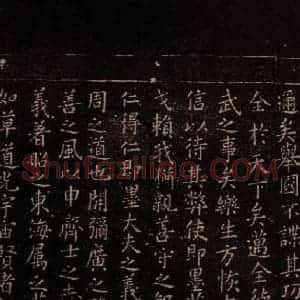 邇矣舉國不謀其功
全於天下矣邁全德
武之事矣樂生方恢
信以待其弊使即墨
戈賴我猶親善守之智
仁得仁即墨大夫之義
周之道也開彌廣之
善之風以申齊士之志
義著昭之東海屬之
如草道光宇宙賢者
Shufaziling.COM